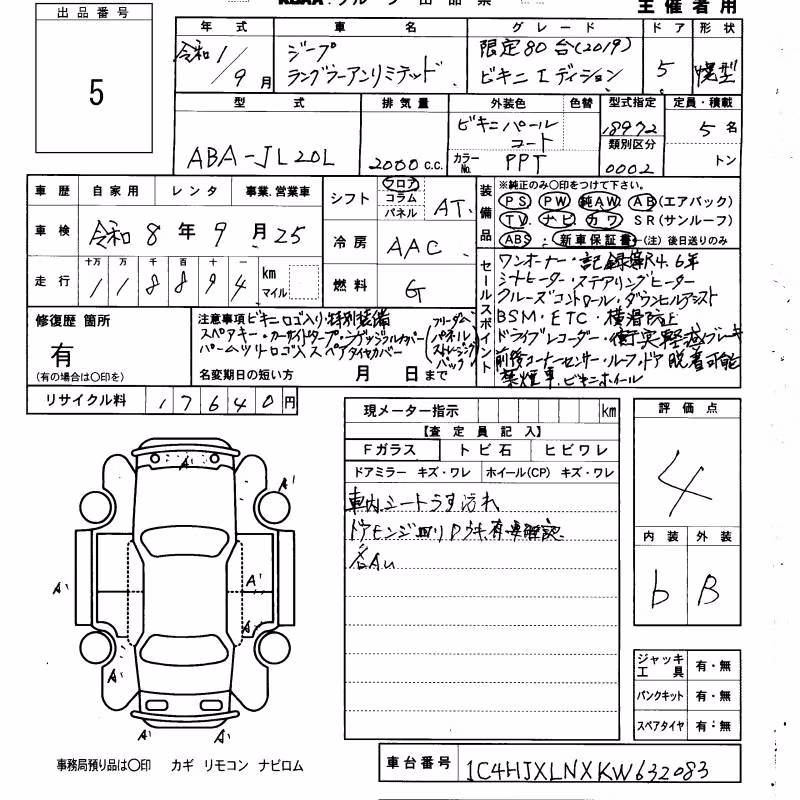 出品番号
5
主催者用
年式 車名 グレード ドア 形状
令和1/9月
ジープ
ラングラーアンリミテッド
限定80台(2019)
ビキニエディション
5
幌型
型式 排気量 外装色 色替 型式指定 定員・積載
ABA-JL20L
2000 c.c.
ビキニパール
コート
カラーNo. PPT
18972
類別区分
0002
5名
トン
車歴 自家用 レンタ 事業.営業車
車検 令和8年9月25
走行 十万 万 千 百 十 一
118894 km マイル
シフト フロア コラム パネル AT
冷房 AAC
燃料 G
装備品
※純正のみ〇印をつけて下さい。
PS PW 純AW AB(エアバック)
TV ナビ カワ SR(サンルーフ)
ABS 新車保証書(注)後日送りのみ
セールスポイント
ワンオーナー・記録簿R4.6年
シートヒーター・ステアリングヒーター
クルーズコントロール・ダウンヒルアシスト
BSM・ETC・横滑防止
ドライブレコーダー・衝突軽減ブレーキ
前後コーナーセンサー・ルーフ・ドア脱着可能
禁煙車・ビキニホイール
修復歴 箇所
有
(有の場合は〇印を)
注意事項 ビキニロゴ入り特別装備
スペアキー・カーサイドタープ・
パームツリーロゴ入スペアタイヤカバー
(フリーダムパネルストレージバック)
名変期日の短い方 月 日まで
リサイクル料 17640円
現メーター指示 km
【査定員記入】
Fガラス トビ石 ヒビワレ
ドアミラー キズ・ワレ ホイール(CP) キズ・ワレ
車内シートうす汚れ
各AU
評価点
4
内装 外装
b B
ジャッキ工具 有・無
パンクキット 有・無
スペアタイヤ 有・無
A'
A'
A'
A'
A'
A'
A'
A'
事務局預り品は〇印 カギ リモコン ナビロム
車台番号 1C4HJXLNXKW632083